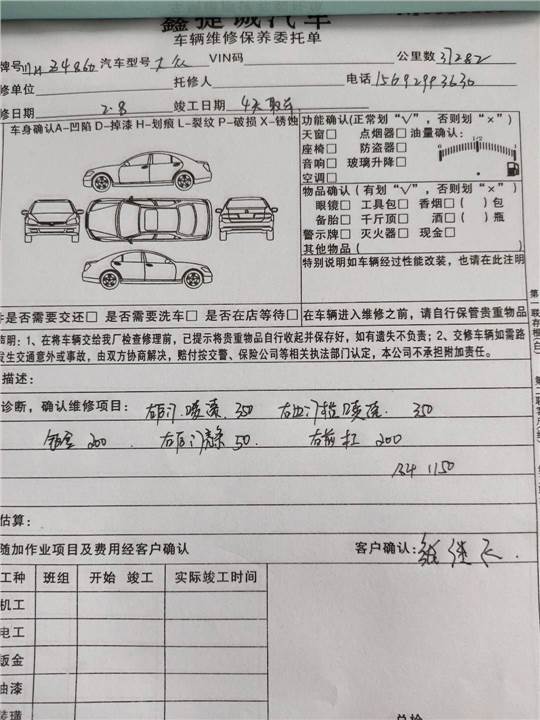 鑫捷诚汽车
车辆维修保养委托单
牌号 汽车型号 大众 VIN码 公里数 37282
修单位 托修人 电话 15692993630
修日期 2.8 竣工日期 4天取车
车身确认A-凹陷 D-掉漆 H-划痕 L-裂纹 P-破损 X-锈蚀 功能确认(正常划“√”,否则划“×”)
天窗□ 点烟器□ 油量确认:
座椅□ 防盗器□ 0 1/2 1
音响□ 玻璃升降□
空调□
物品确认(有划“√”,否则划“×”)
眼镜□ 工具包□ 香烟( )包
备胎□ 千斤顶□ 酒( )瓶
警示牌□ 灭火器□ 现金□
其他物品( )
特别说明如车辆经过性能改装,也请在此注明
件是否需要交还□ 是否需要洗车□ 是否在店等待□ 在车辆进入维修之前,请自行保管贵重物品
声明:1、在将车辆交给我厂检查修理前,已提示将贵重物品自行收起并保存好,如有遗失不负责;2、交修车辆如需路
发生交通意外或事故,由双方协商解决,赔付按交警、保险公司等相关执法部门认定,本公司不承担附加责任。
描述:
诊断,确认维修项目: 右前门喷漆 350 右后门 喷漆 350
钣金 200 右后门 50 右前杠 200
1150
估算:
随加作业项目及费用经客户确认 客户确认:
工种 班组 开始 竣工 实际竣工时间
机工
电工
钣金
油漆
装璜
总检